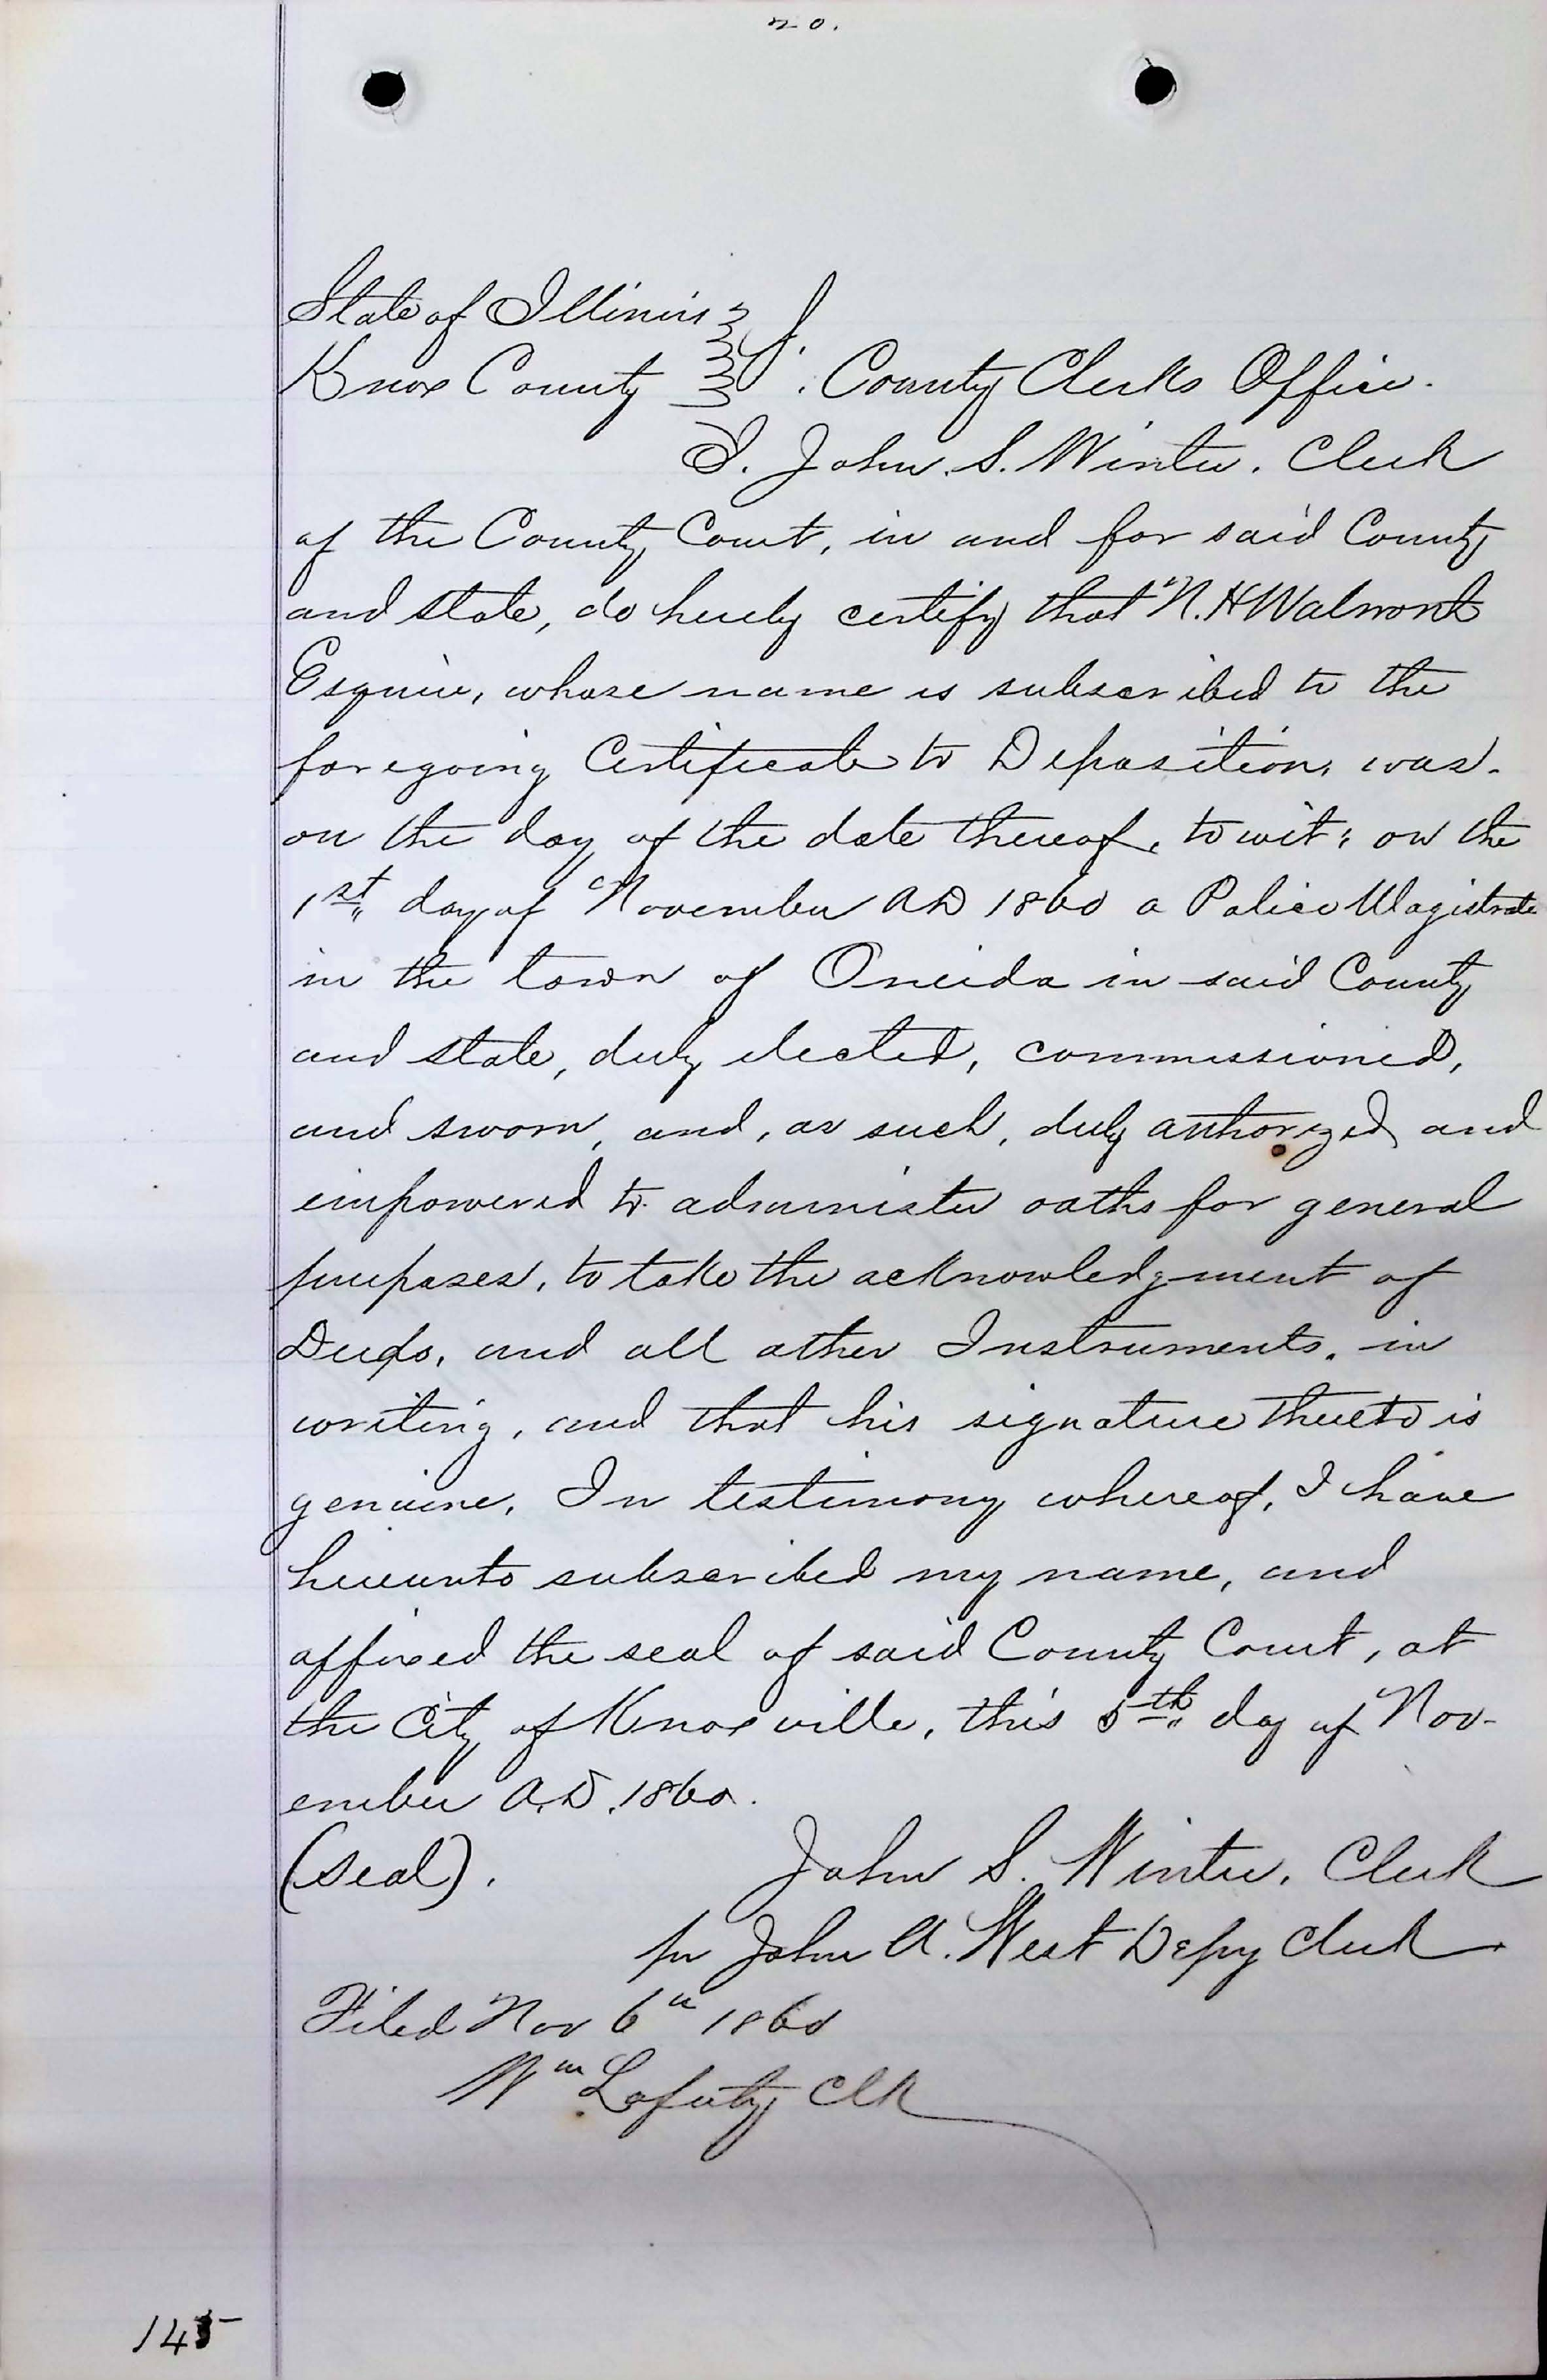 no.
State of Illinois
Knox County S. County Clerks Office.
I. John. S. Winter. Clerk
of the County Court, in and for said County
and state, do hereby certify that N. H Walmont
Esquire, whose name is subscribed to the
foregoing Certificate to Deposition, was.
on the day of the date thereof, to wit; on the
1st day of November AD 1860 a Police Magistrate
in the town of Oneida in said County
and state, duly elected, commissioned,
and sworn, and, as such, duly authorized and
empowered to administer oaths for general
purposes, to take the acknowledgment of
Deeds, and all other Instruments, in
writing, and that his signature thereto is
genuine. In testimony whereof, I have
hereunto subscribed my name, and
affixed the seal of said County Court, at
the City of Knoxville, this 5th day of Nov-
ember A.D. 1860.
(seal). John S. Winter. Clerk
pr John A. West Depy Clerk
Filed Nov 6th 1860
Wm Lafferty Clk
145